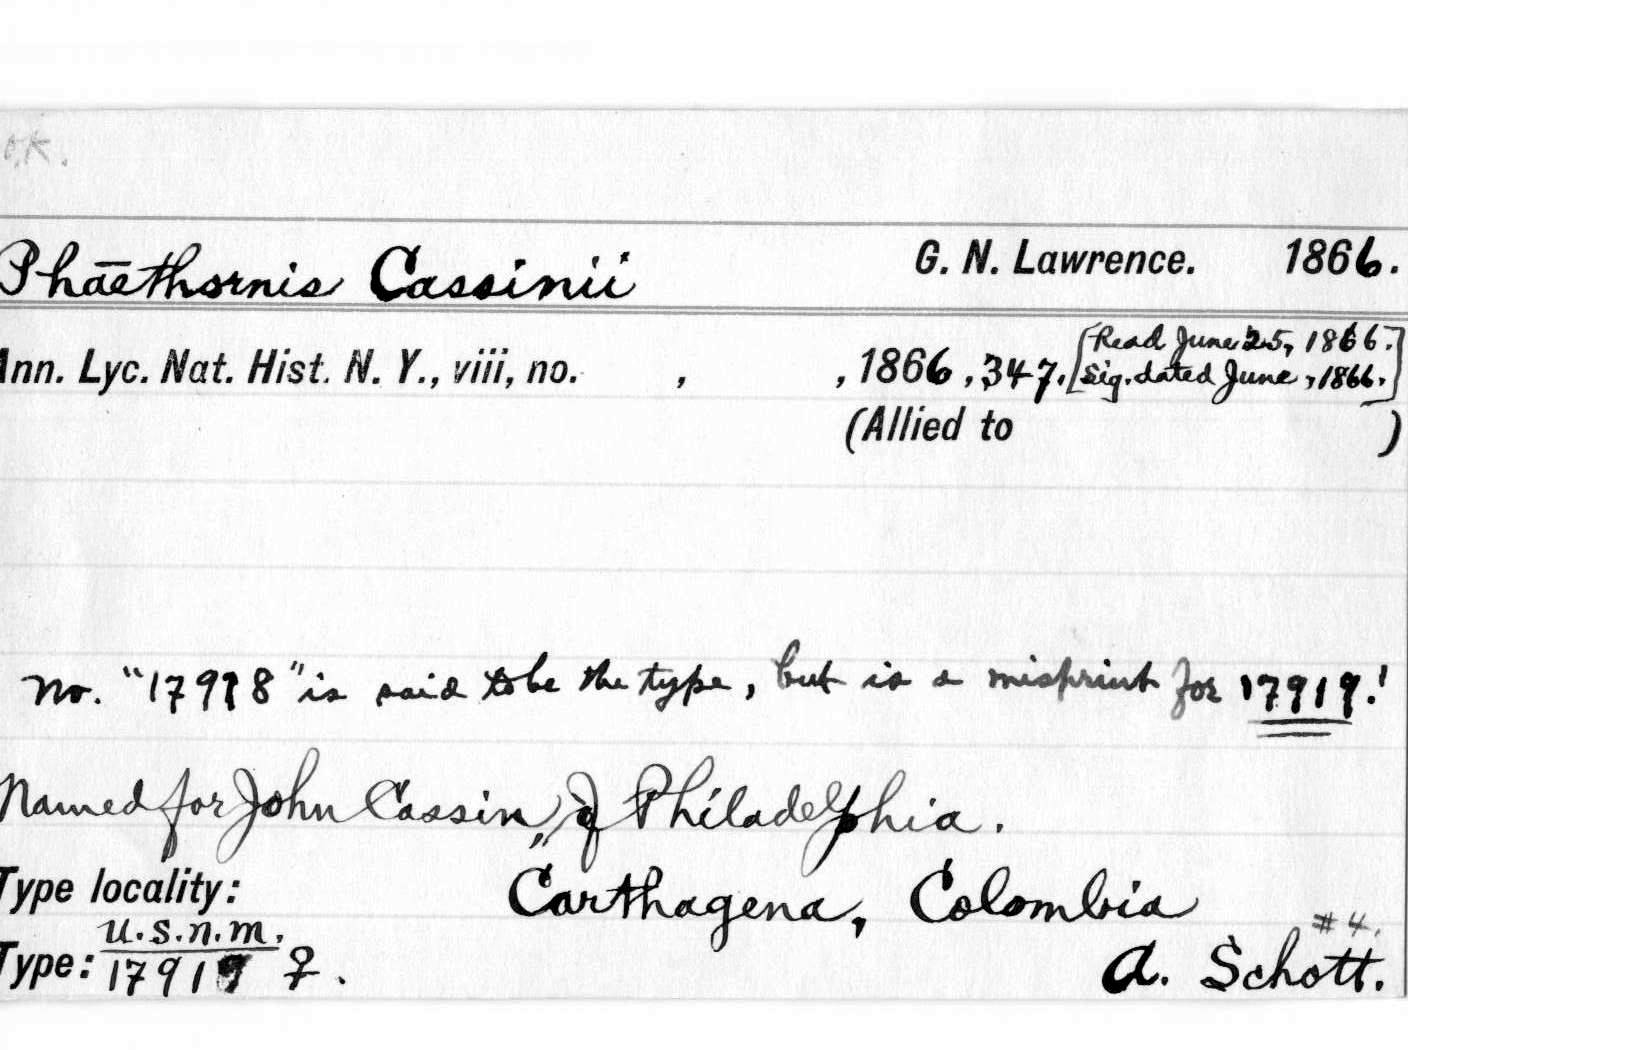 O.K.
Phaethornis Cassinii G. N. Lawrence. 1866.
Ann. Lyc. Nat. Hist. N. Y., viii, no. , , 1866, 347. [Read June 25, 1866.
Sig. dated June, 1866.]
(Allied to )
No. "17918" is said to be the type, but is a misprint for 17919!
Named for John Cassin, of Philadelphia.
Type locality: Carthagena, Colombia
#4.
Type: U.S.N.M. 17919 ♀. A. Schott.